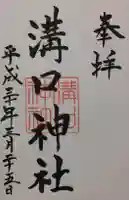 奉拝
溝口神社
平成三十年三月二十五日